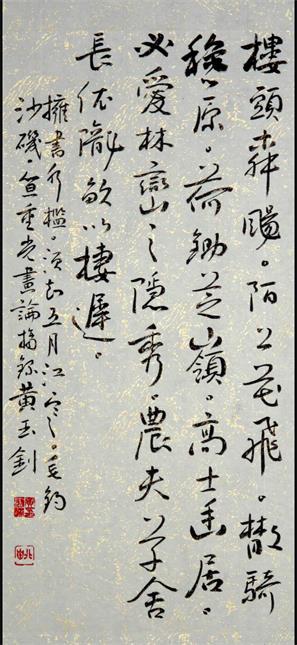 樓頭柳颺。陌上花飛。散騎
秋原。荷鋤芝嶺。高士幽居。
必愛林巒之隱秀。農夫草舍
長依隴畝以棲遲。
擁書水檻。須知五月江寒。垂釣
沙磯。笪重光畫論摘錄黃玉釗